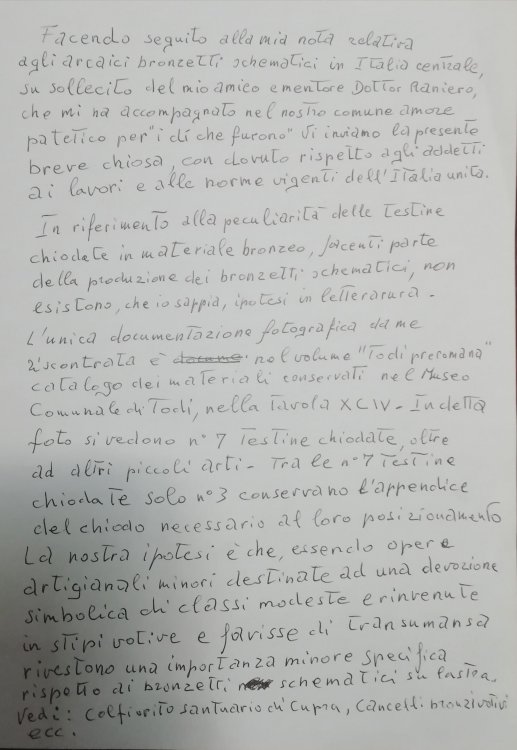 Facendo seguito alla mia nota relativa
agli arcaici bronzetti schematici in Italia centrale,
su sollecito del mio amico e mentore Dottor Raniero,
che mi ha accompagnato nel nostro comune amore
patetico per "i dì che furono" Vi inviamo la presente
breve chiosa, con dovuto rispetto agli addetti
ai lavori e alle norme vigenti dell'Italia unita.
In riferimento alla peculiarità delle testine
chiodate in materiale bronzeo, facenti parte
della produzione dei bronzetti schematici, non
esistono, che io sappia, ipotesi in letterarura -
L'unica documentazione fotografica da me
riscontrata è nel volume "Todi preromana"
catalogo dei materiali conservati nel Museo
Comunale di Todi, nella Tavola XCIV - In detta
foto si vedono n° 7 Testine chiodate, oltre
ad altri piccoli arti - Tra le n° 7 Testine
chiodate solo n° 3 conservano l'appendice
del chiodo necessario al loro posizionamento
La nostra ipotesi è che, essendo opere
artigianali minori destinate ad una devozione
simbolica di classi modeste e rinvenute
in stipi votive e favisse di transumansa
rivestono una importanza minore specifica
rispetto ai bronzetti schematici su lastra.
Vedi: Colfiorito santuario di Cupra, Cancelli bronzi votivi
ecc.